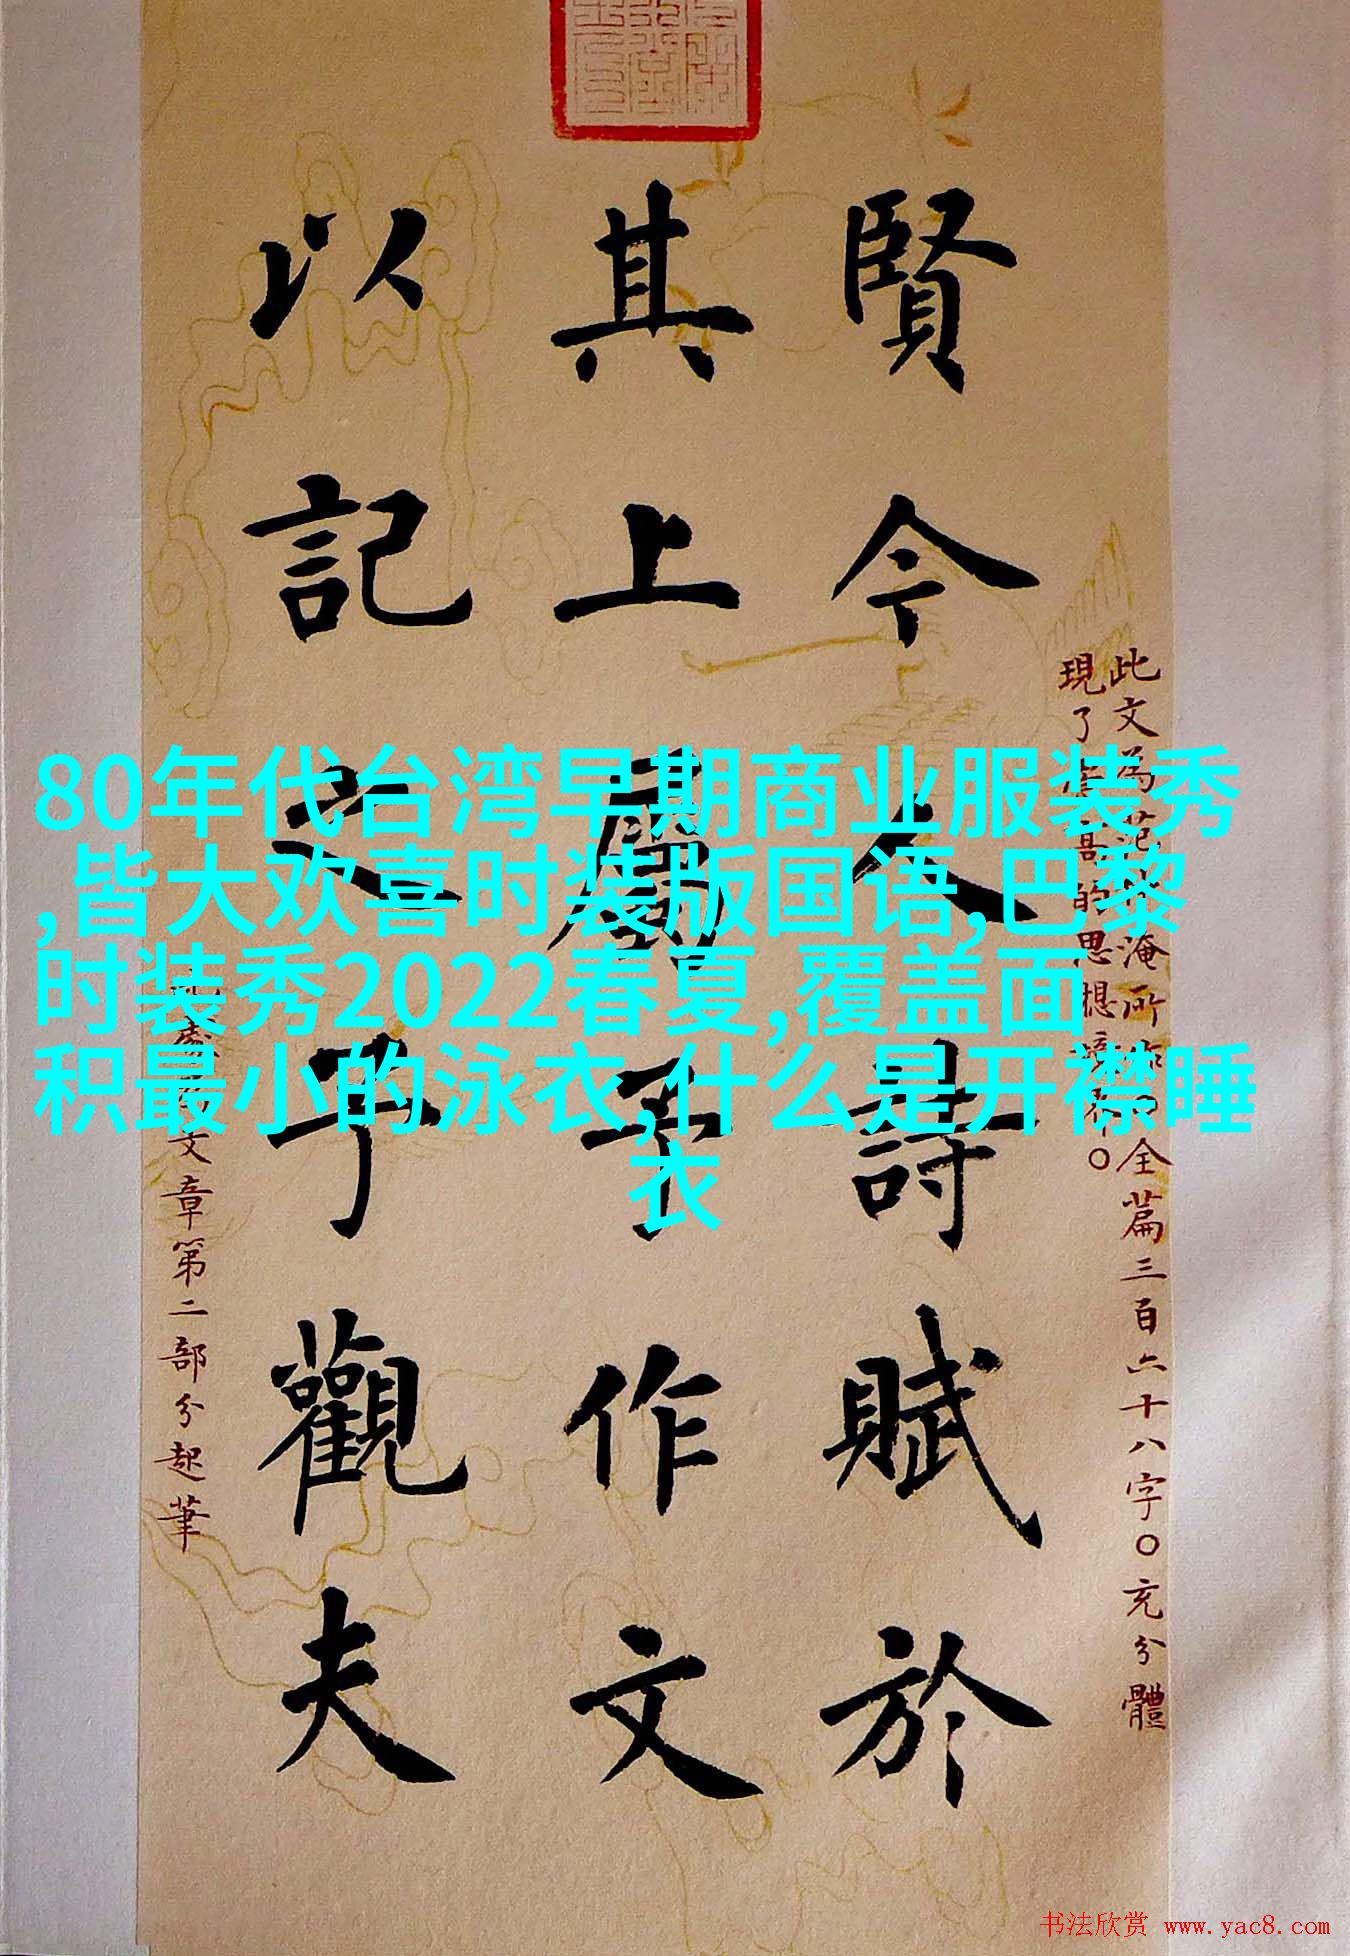 賢今人詩賦於
其上屬予作文
以記之予觀夫
此文為范仲淹所作〇全篇三百六十八字〇充分體
文章第二部分起筆
80年代台湾早期商业服装秀
,皆大欢喜时装版国语,巴黎
时装秀2022春夏,覆盖面
积最小的泳衣,什么是开襟睡
衣
书法欣赏 www.yac8.com